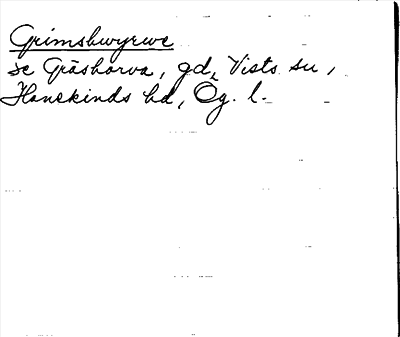 Grimshwyrwe
se Gråshorva, gd, Vists su,
Hanekinds hd, Ög. l.